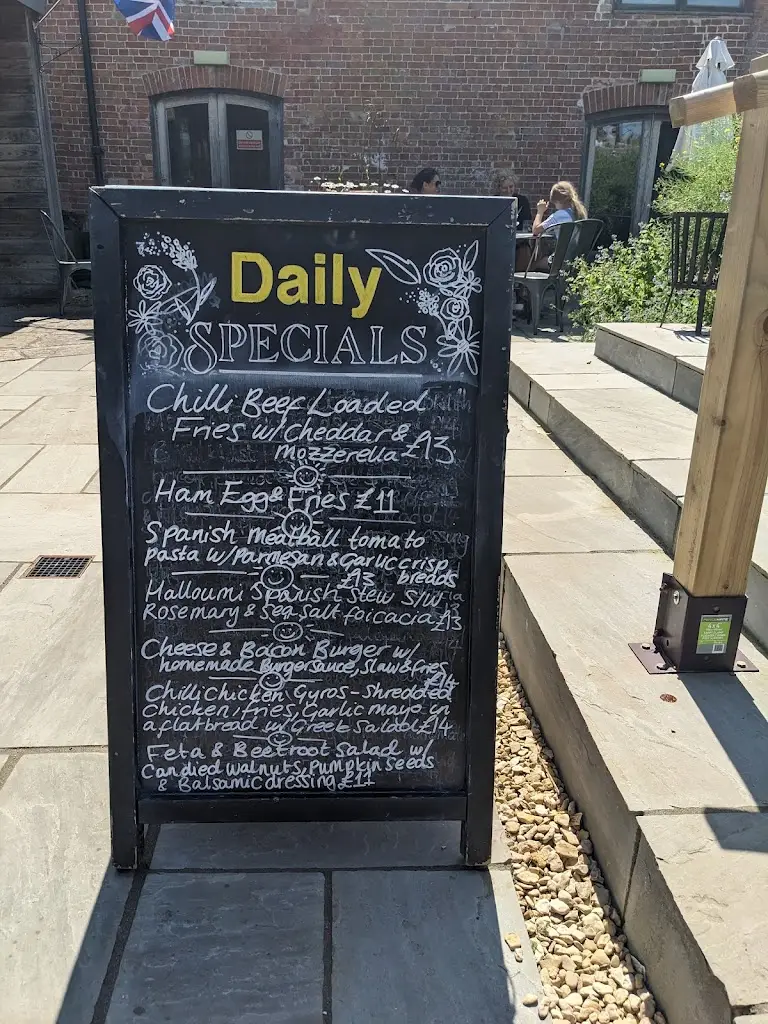 Daily
SPECIALS
Chilli Beef Loaded
Fries w/cheddar &
mozzerella £13
Ham Egg & Fries £11
Spanish meatball tomato
pasta w/parmesan & Garlic crisp
£13 breads
Halloumi Spanish Stew S/W
Rosemary & sea salt foicacia £13
Cheese & Bacon Burger w/
homemade Burger sauce, slaw & fries
£14
Chilli Chicken Gyros - Shredded
chicken, fries, Garlic mayo in
a flatbread w/ Greek Salad £14
Feta & Beetroot Salad w/
Candied walnuts, Pumpkin seeds
& Balsamic dressing £11